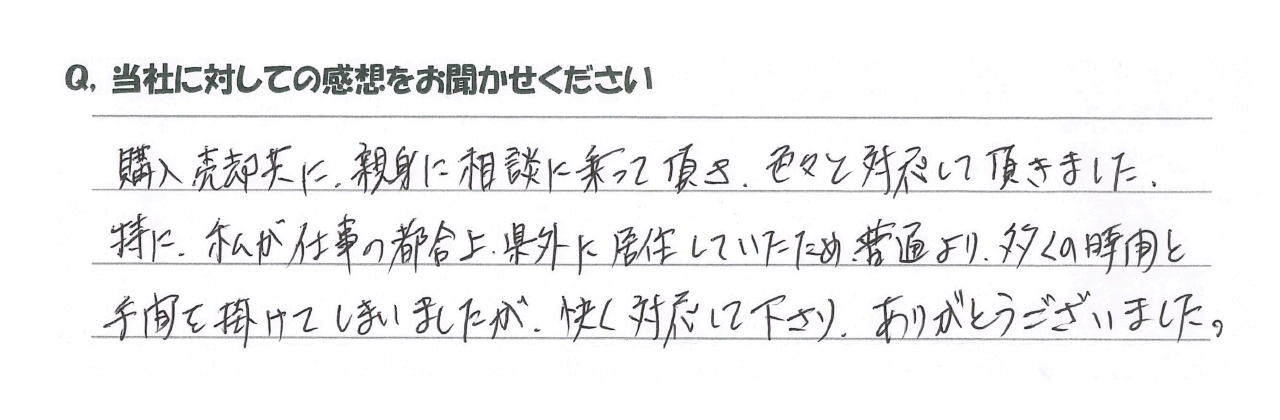 Q. 当社に対しての感想をお聞かせください
購入売却共に、親身に相談に乗って頂き、色々と対応して頂きました、
特に、私が仕事の都合上、県外に居住していたため、普通より、多くの時間と
手間を掛けてしまいましたが、快く対応して下さり、ありがとうございました。